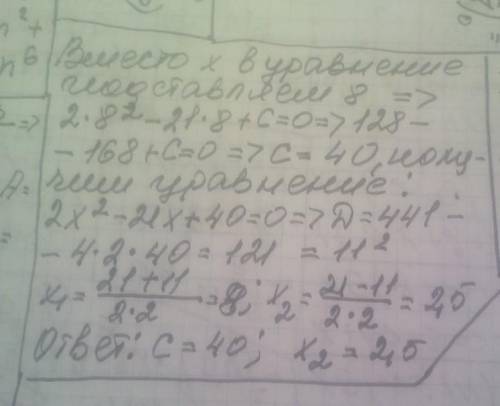 n² +
n⁶
Вместо x в уравнение
подставляем 8 =>
2·8² - 21·8 + C = 0 => 128 -
- 168 + C = 0 => C = 40, полу-
чим уравнение:
2x² - 21x + 40 = 0 => D = 441 -
- 4·2·40 = 121 = 11²
x₁ = (21+11)/(2·2) = 8; x₂ = (21-11)/(2·2) = 2,5
Ответ: C = 40; x₂ = 2,5
=>
A =
=